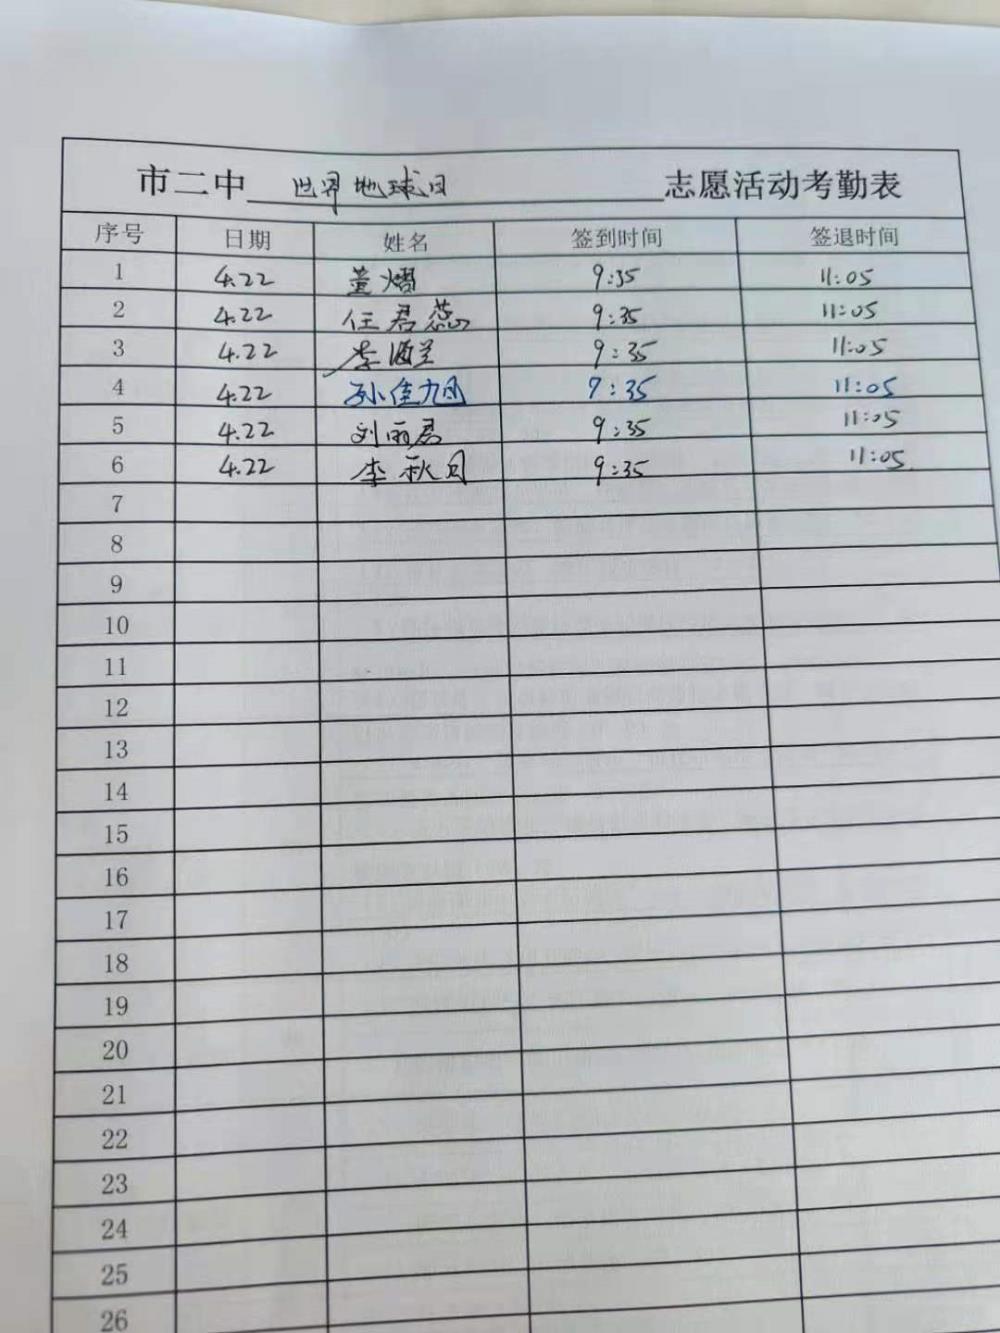 市二中 世界地球日 志愿活动考勤表
序号 日期 姓名 签到时间 签退时间
1 4.22 董熠 9:35 11:05
2 4.22 任君蕊 9:35 11:05
3 4.22 李海兰 9:35 11:05
4 4.22 孙佳旭 9:35 11:05
5 4.22 刘雨君 9:35 11:05
6 4.22 李秋月 9:35 11:05
7
8
9
10
11
12
13
14
15
16
17
18
19
20
21
22
23
24
25
26